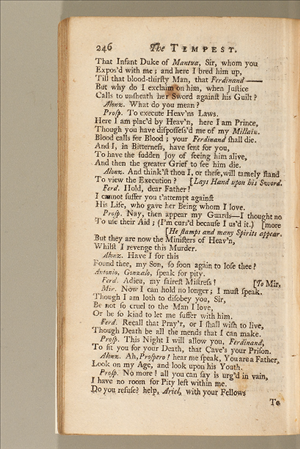 246 The TEMPEST.
That Infant Duke of Mantua, Sir, whom you
Expos'd with me; and here I bred him up,
Till that blood-thirsty Man, that Ferdinand——
But why do I exclaim on him, when Justice
Calls to unsheath her Sword against his Guilt?
Alonz. What do you mean?
Prosp. To execute Heav'ns Laws.
Here I am plac'd by Heav'n, here I am Prince,
Though you have dispossess'd me of my Millain.
Blood calls for Blood; your Ferdinand shall die.
And I, in Bitterness, have sent for you,
To have the sudden Joy of seeing him alive,
And then the greater Grief to see him die.
Alonz. And think'st thou I, or these, will tamely stand
To view the Execution? [Lays Hand upon his Sword.
Ferd. Hold, dear Father!
I cannot suffer you t'attempt against
His Life, who gave her Being whom I love.
Prosp. Nay, then appear my Guards—I thought no
To use their Aid; (I'm curs'd because I us'd it.) [more
[He stamps and many Spirits appear.
But they are now the Ministers of Heav'n,
Whilst I revenge this Murder.
Alonz. Have I for this
Found thee, my Son, so soon again to lose thee?
Antonio, Gonzalo, speak for pity.
Ferd. Adieu, my fairest Mistress! [To Mir,
Mir. Now I can hold no longer; I must speak.
Though I am loth to disobey you, Sir,
Be not so cruel to the Man I love,
Or be so kind to let me suffer with him.
Ferd. Recall that Pray'r, or I shall wish to live,
Though Death be all the mends that I can make.
Prosp. This Night I will allow you, Ferdinand,
To fit you for your Death, that Cave's your Prison.
Alonz. Ah, Prospero! hear me speak, You are a Father,
Look on my Age, and look upon his Youth.
Prosp. No more! all you can say is urg'd in vain,
I have no room for Pity left within me.
Do you refuse? help, Ariel, with your Fellows
To